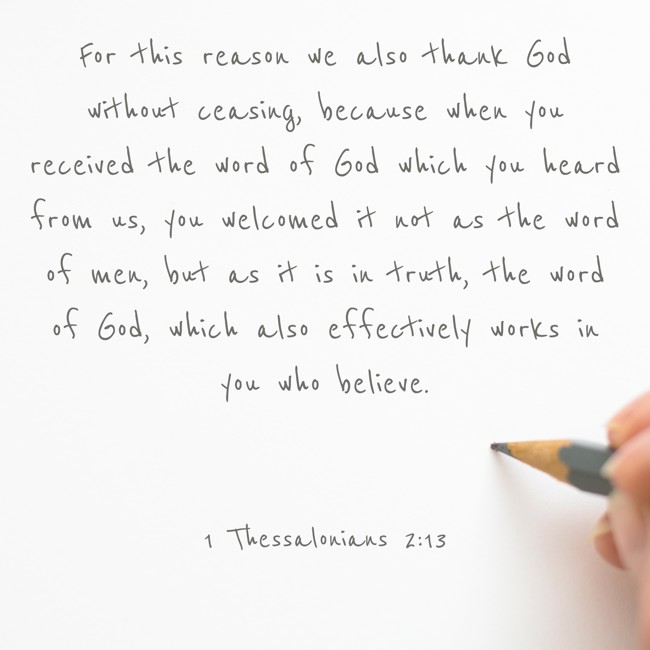 For this reason we also thank God
without ceasing, because when you
received the word of God which you heard
from us, you welcomed it not as the word
of men, but as it is in truth, the word
of God, which also effectively works in
you who believe.
1 Thessalonians 2:13